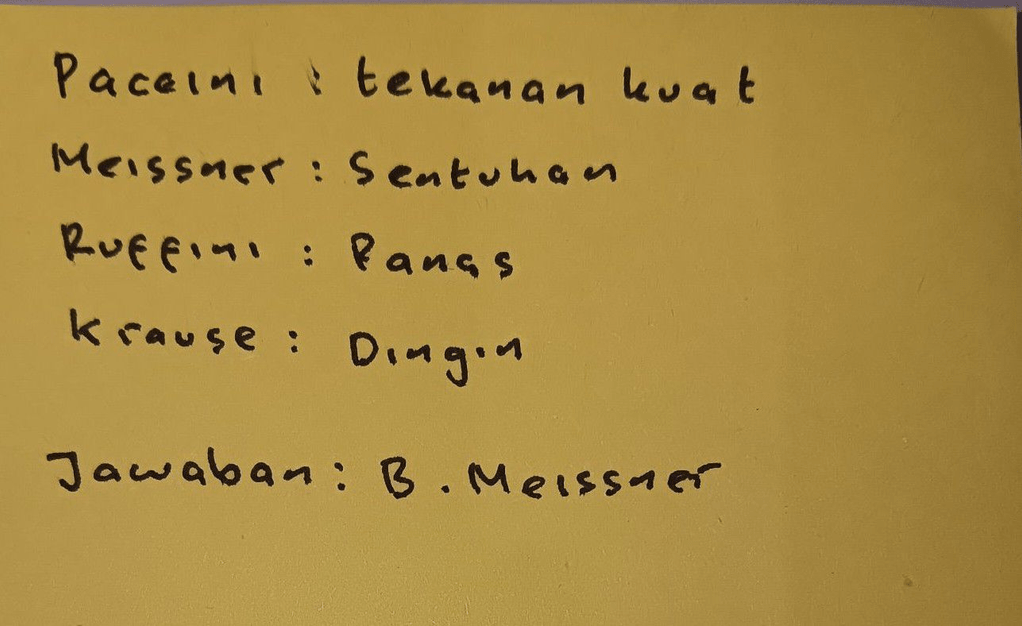 Paccini : tekanan kuat
Meissner : Sentuhan
Ruffini : Panas
Krause : Dingin
Jawaban : B. Meissner